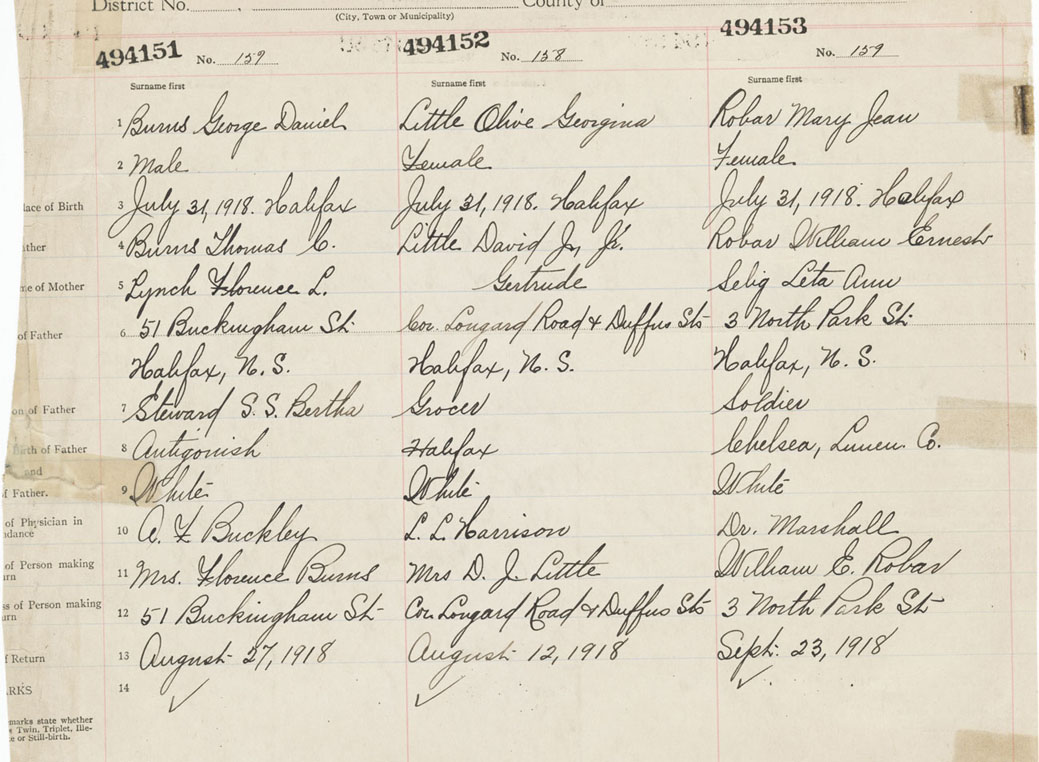 District No. , County of
(City, Town or Municipality)
494151 No. 157 494152 No. 158 494153 No. 159
Surname first Surname first Surname first
1 Burns George Daniel Little Olive Georgina Robar Mary Jean
2 Male Female Female
lace of Birth 3 July 31, 1918. Halifax July 31, 1918. Halifax July 31, 1918. Halifax
ther 4 Burns Thomas C. Little David J, Jr. Robar William Ernest
me of Mother 5 Lynch Florence L. Gertrude Selig Leta Ann
of Father 6 51 Buckingham St. Cor. Longard Road & Duffus Sts 3 North Park St.
Halifax, N.S. Halifax, N.S. Halifax, N.S.
on of Father 7 Steward S.S. Bertha Grocer Soldier
irth of Father 8 Antigonish Halifax Chelsea, Lunen Co.
and
f Father. 9 White White White
of Physician in
ndance 10 A. F Buckley L. L. Harrison Dr. Marshall
of Person making
urn 11 Mrs. Florence Burns Mrs D. J. Little William E. Robar
ss of Person making
urn 12 51 Buckingham St Cor. Longard Road & Duffus Sts 3 North Park St
f Return 13 August 27, 1918 August 12, 1918 Sept. 23, 1918
ARKS 14
marks state whether
s Twin, Triplet, Ille-
e or Still-birth.